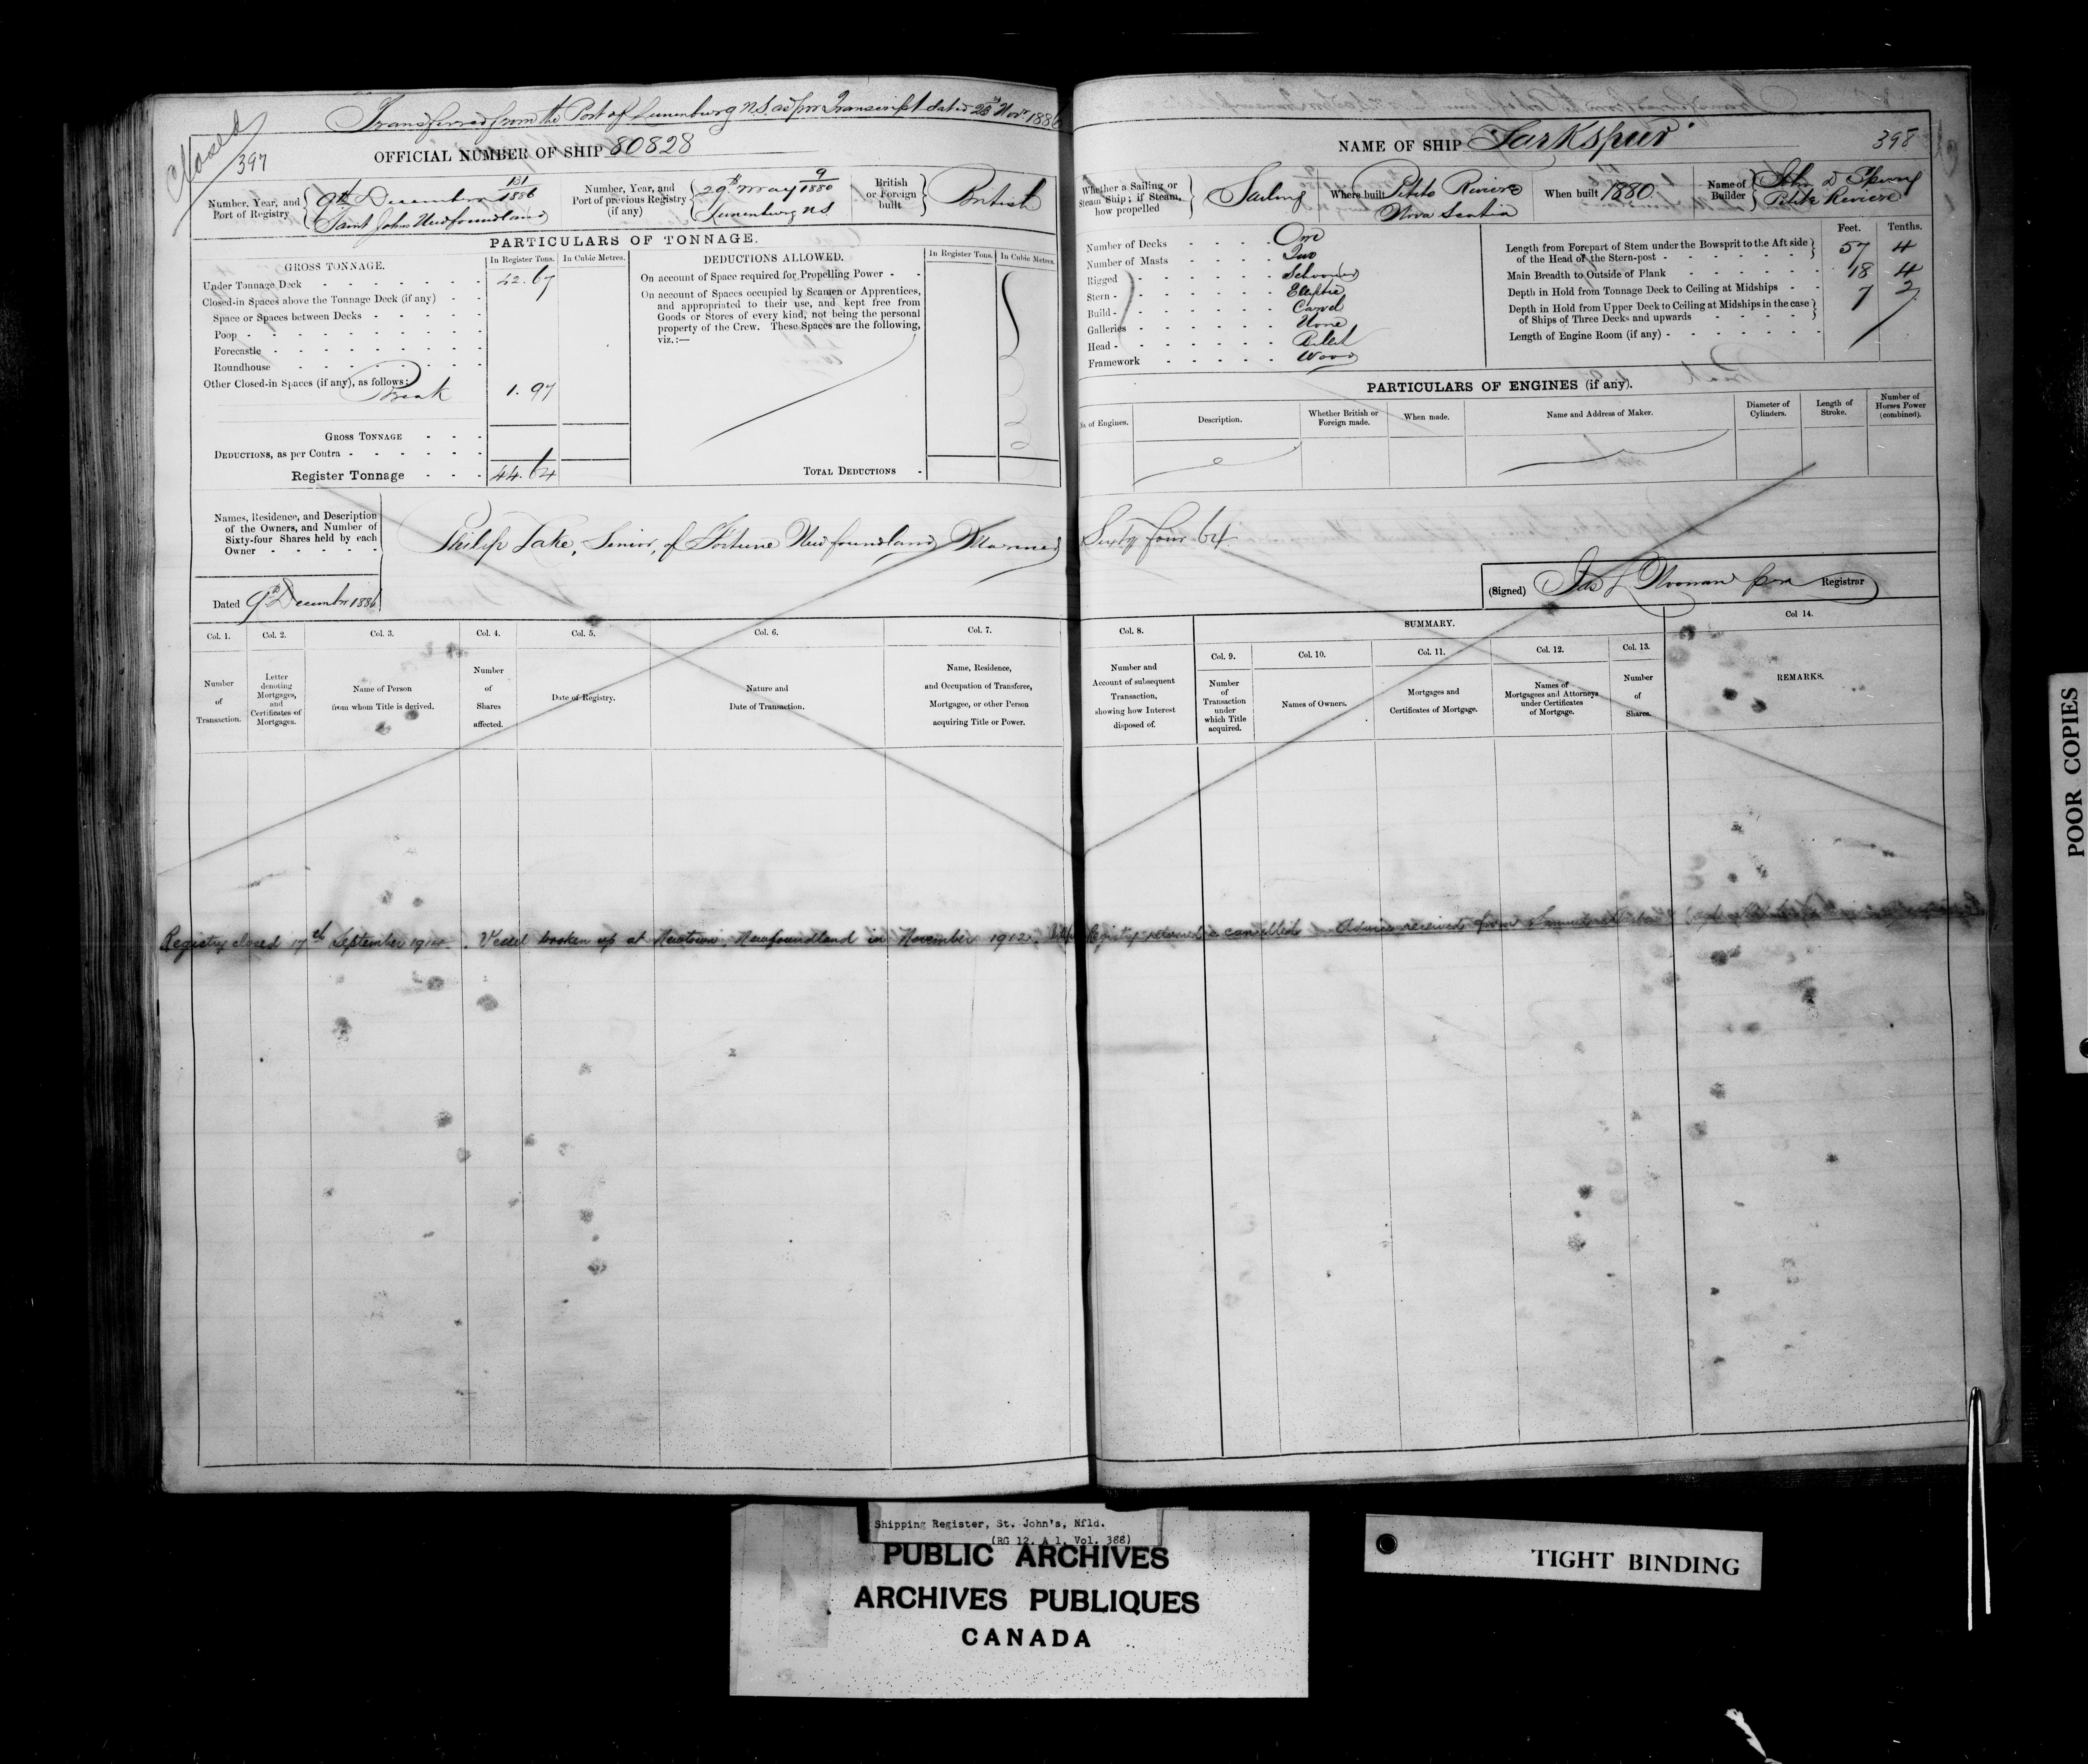 Closed
Transferred from the Port of Lunenburg N.S. as per Transcript dated 23rd Novr 1886
397
OFFICIAL NUMBER OF SHIP 80828
Number, Year, and Port of Registry
9th December 131/1886
Saint Johns Newfoundland
Number, Year, and Port of previous Registry (if any)
29th May 9/1880
Lunenburg N.S.
British or Foreign built
British
PARTICULARS OF TONNAGE.
GROSS TONNAGE.
In Register Tons. In Cubic Metres.
Under Tonnage Deck 42.67
Closed-in Spaces above the Tonnage Deck (if any)
Space or Spaces between Decks
Poop
Forecastle
Roundhouse
Other Closed-in Spaces (if any), as follows:
Break 1.97
GROSS TONNAGE
DEDUCTIONS, as per Contra
Register Tonnage 44.64
DEDUCTIONS ALLOWED.
In Register Tons. In Cubic Metres.
On account of Space required for Propelling Power
On account of Spaces occupied by Seamen or Apprentices,
and appropriated to their use, and kept free from
Goods or Stores of every kind, not being the personal
property of the Crew. These Spaces are the following,
viz.:—
TOTAL DEDUCTIONS
Names, Residence, and Description
of the Owners, and Number of
Sixty-four Shares held by each
Owner
Philip Lake, Senior, of Fortune Newfoundland Mariner Sixty four 64
Dated 9th December 1886
Col. 1. Col. 2. Col. 3. Col. 4. Col. 5. Col. 6. Col. 7.
Number of Transaction.
Letter denoting Mortgages, and Certificates of Mortgages.
Name of Person from whom Title is derived.
Number of Shares affected.
Date of Registry.
Nature and Date of Transaction.
Name, Residence, and Occupation of Transferee, Mortgagee, or other Person acquiring Title or Power.
NAME OF SHIP Larkspur
398
Whether a Sailing or Steam Ship; if Steam, how propelled
Sailing
Where built
Petite Riviere
Nova Scotia
When built 1880.
Name of Builder
John D Sperry
Petite Riviere
Number of Decks One
Number of Masts Two
Rigged Schooner
Stern Eliptic
Build Carvel
Galleries None
Head Billet
Framework Wood
Feet. Tenths.
Length from Forepart of Stem under the Bowsprit to the Aft side of the Head of the Stern-post 57 4
Main Breadth to Outside of Plank 18 4
Depth in Hold from Tonnage Deck to Ceiling at Midships 7 2
Depth in Hold from Upper Deck to Ceiling at Midships in the case of Ships of Three Decks and upwards
Length of Engine Room (if any)
PARTICULARS OF ENGINES (if any).
No. of Engines.
Description.
Whether British or Foreign made.
When made.
Name and Address of Maker.
Diameter of Cylinders.
Length of Stroke.
Number of Horses Power (combined).
(Signed) Registrar
Col. 8.
Number and Account of subsequent Transaction, showing how Interest disposed of.
SUMMARY.
Col. 9. Col. 10. Col. 11. Col. 12. Col. 13.
Number of Transaction under which Title acquired.
Names of Owners.
Mortgages and Certificates of Mortgage.
Names of Mortgagees and Attorneys under Certificates of Mortgage.
Number of Shares.
Col 14.
REMARKS.
Registry closed 17th September . Vessel broken up at Newtown, Newfoundland in November 1912. Registry cancelled Advice received from
POOR COPIES
Shipping Register, St. John's, Nfld.
(RG 12, A 1, Vol. 388)
PUBLIC ARCHIVES
ARCHIVES PUBLIQUES
CANADA
TIGHT BINDING